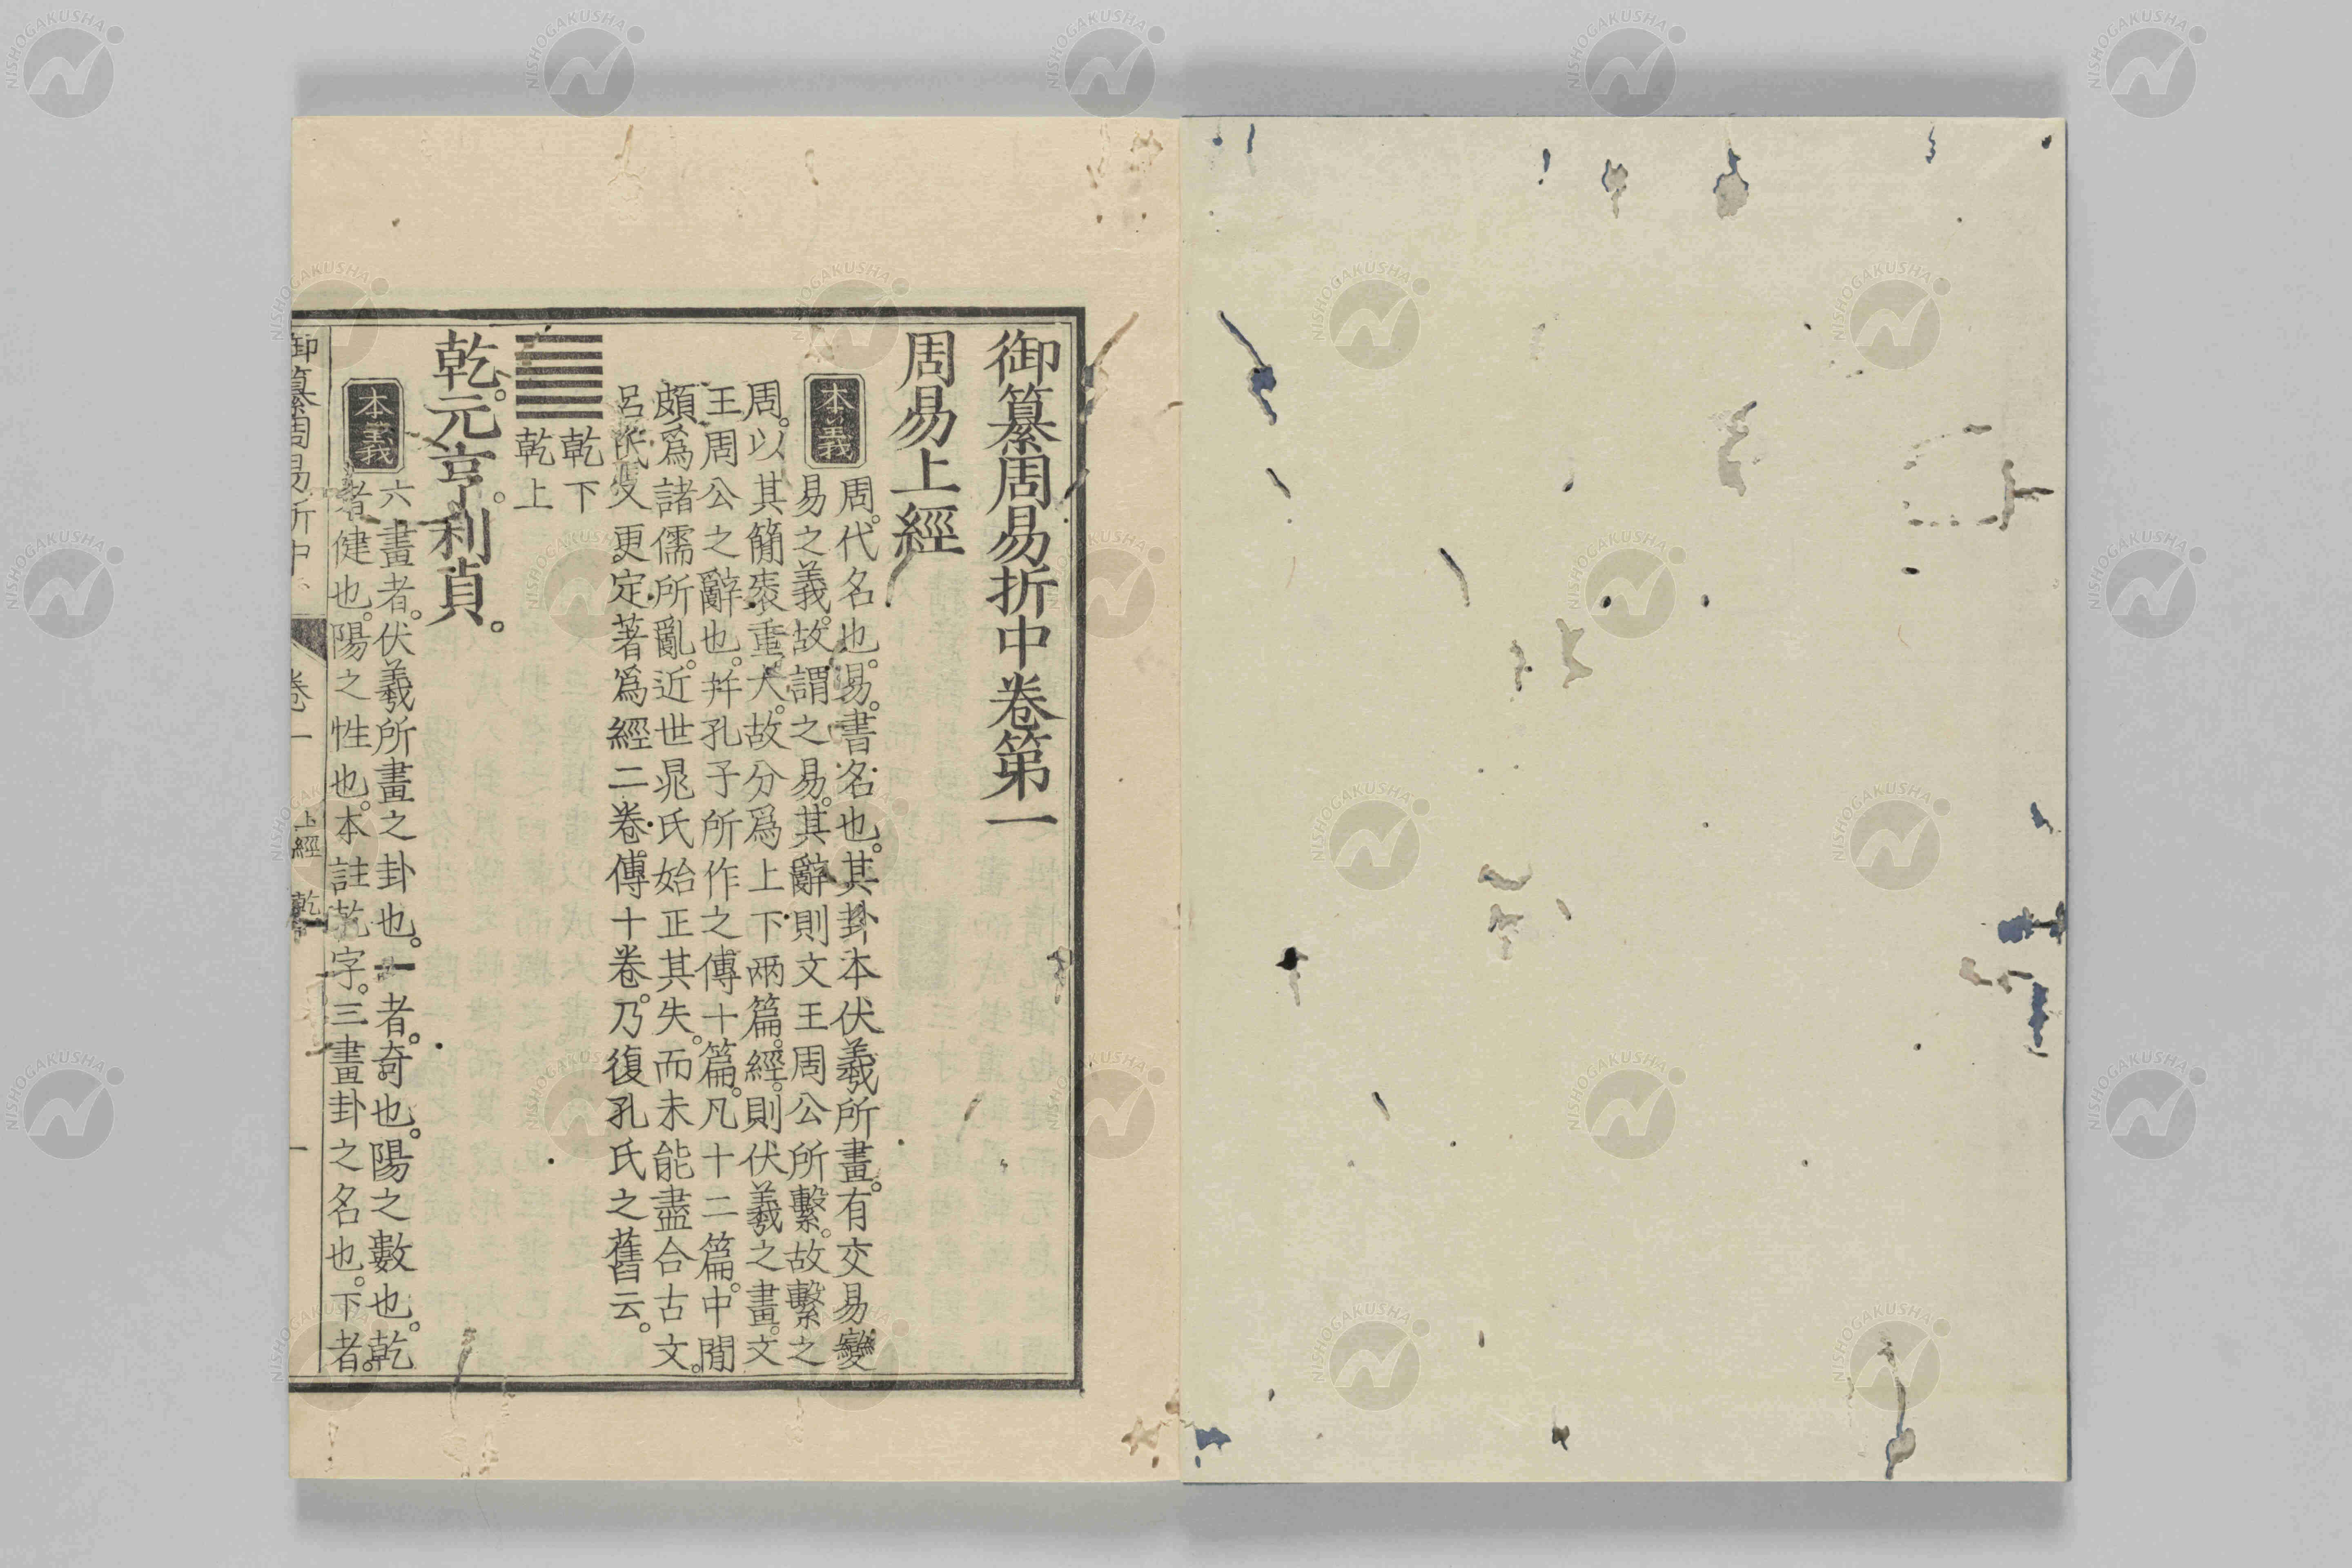 御纂周易折中卷第一
周易上經
本義
周。代名也。易。書名也。其卦本伏羲所畫。有交易變
易之義。故謂之易。其辭則文王周公所繫。故繫之
周。以其簡袠重大。故分爲上下兩篇。經。則伏羲之畫。文
王周公之辭也。并孔子所作之傳十篇。凡十二篇。中閒
頗爲諸儒所亂。近世鼂氏始正其失。而未能盡合古文。
呂氏又更定著爲經二卷。傳十卷。乃復孔氏之舊云。
乾下
乾上
乾。元亨。利貞。
本義
六畫者。伏羲所畫之卦也。一者。奇也。陽之數也。乾
者健也。陽之性也。本註乾字。三畫卦之名也。下者。
御纂周易折中
卷一
上經
乾
一
NISHOGAKUSHA